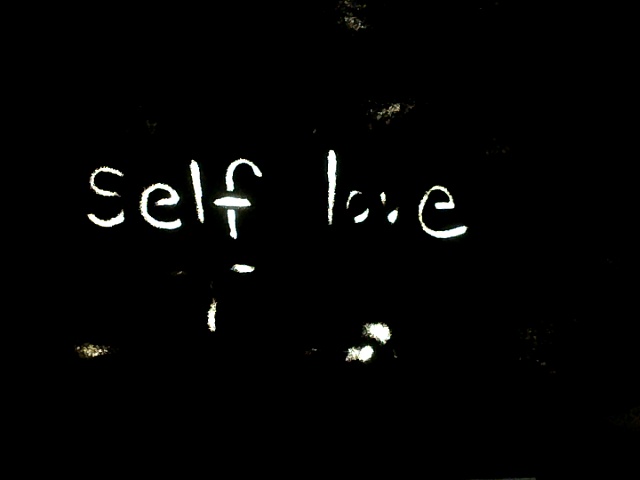 self love